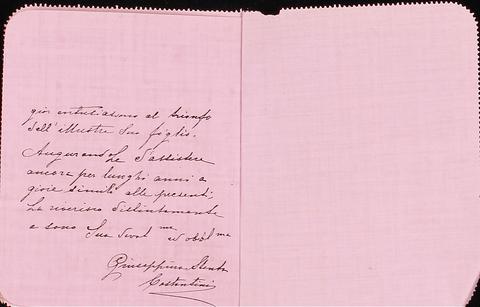 gior entusiasmo al trionfo
dell'illustre Suo figlio.
AugurandoLe d'assistere
ancora per lunghi anni a
gioie simili alle presenti,
La riverisco distintamente
e sono Sua devot ma ed obbl ma
Giuseppina
Costantini